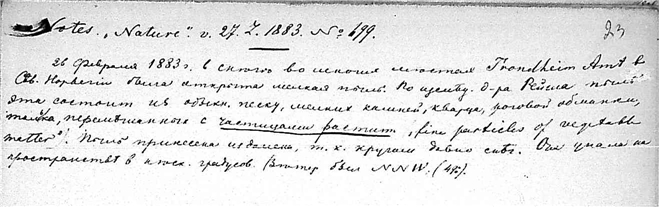 23
Notes. „Nature". v. 27. I. 1883. № 699.
26 Февраля 1883 г. в снегу во многих местах Trondheim Amt в
Сев. Норвегии была открыта мелкая пыль. По исслед. д-ра Рейша пыль
эта состоит из обыкн. песку, мелких камней, кварца, роговой обманки,
талька, перемешанного с частицами растит. „fine particles of vegetable
matter". Пыль принесена издалека, т. к. кругом давно снег. Она упала на
пространстве в неск. градусов. Ветер был NNW. (45).